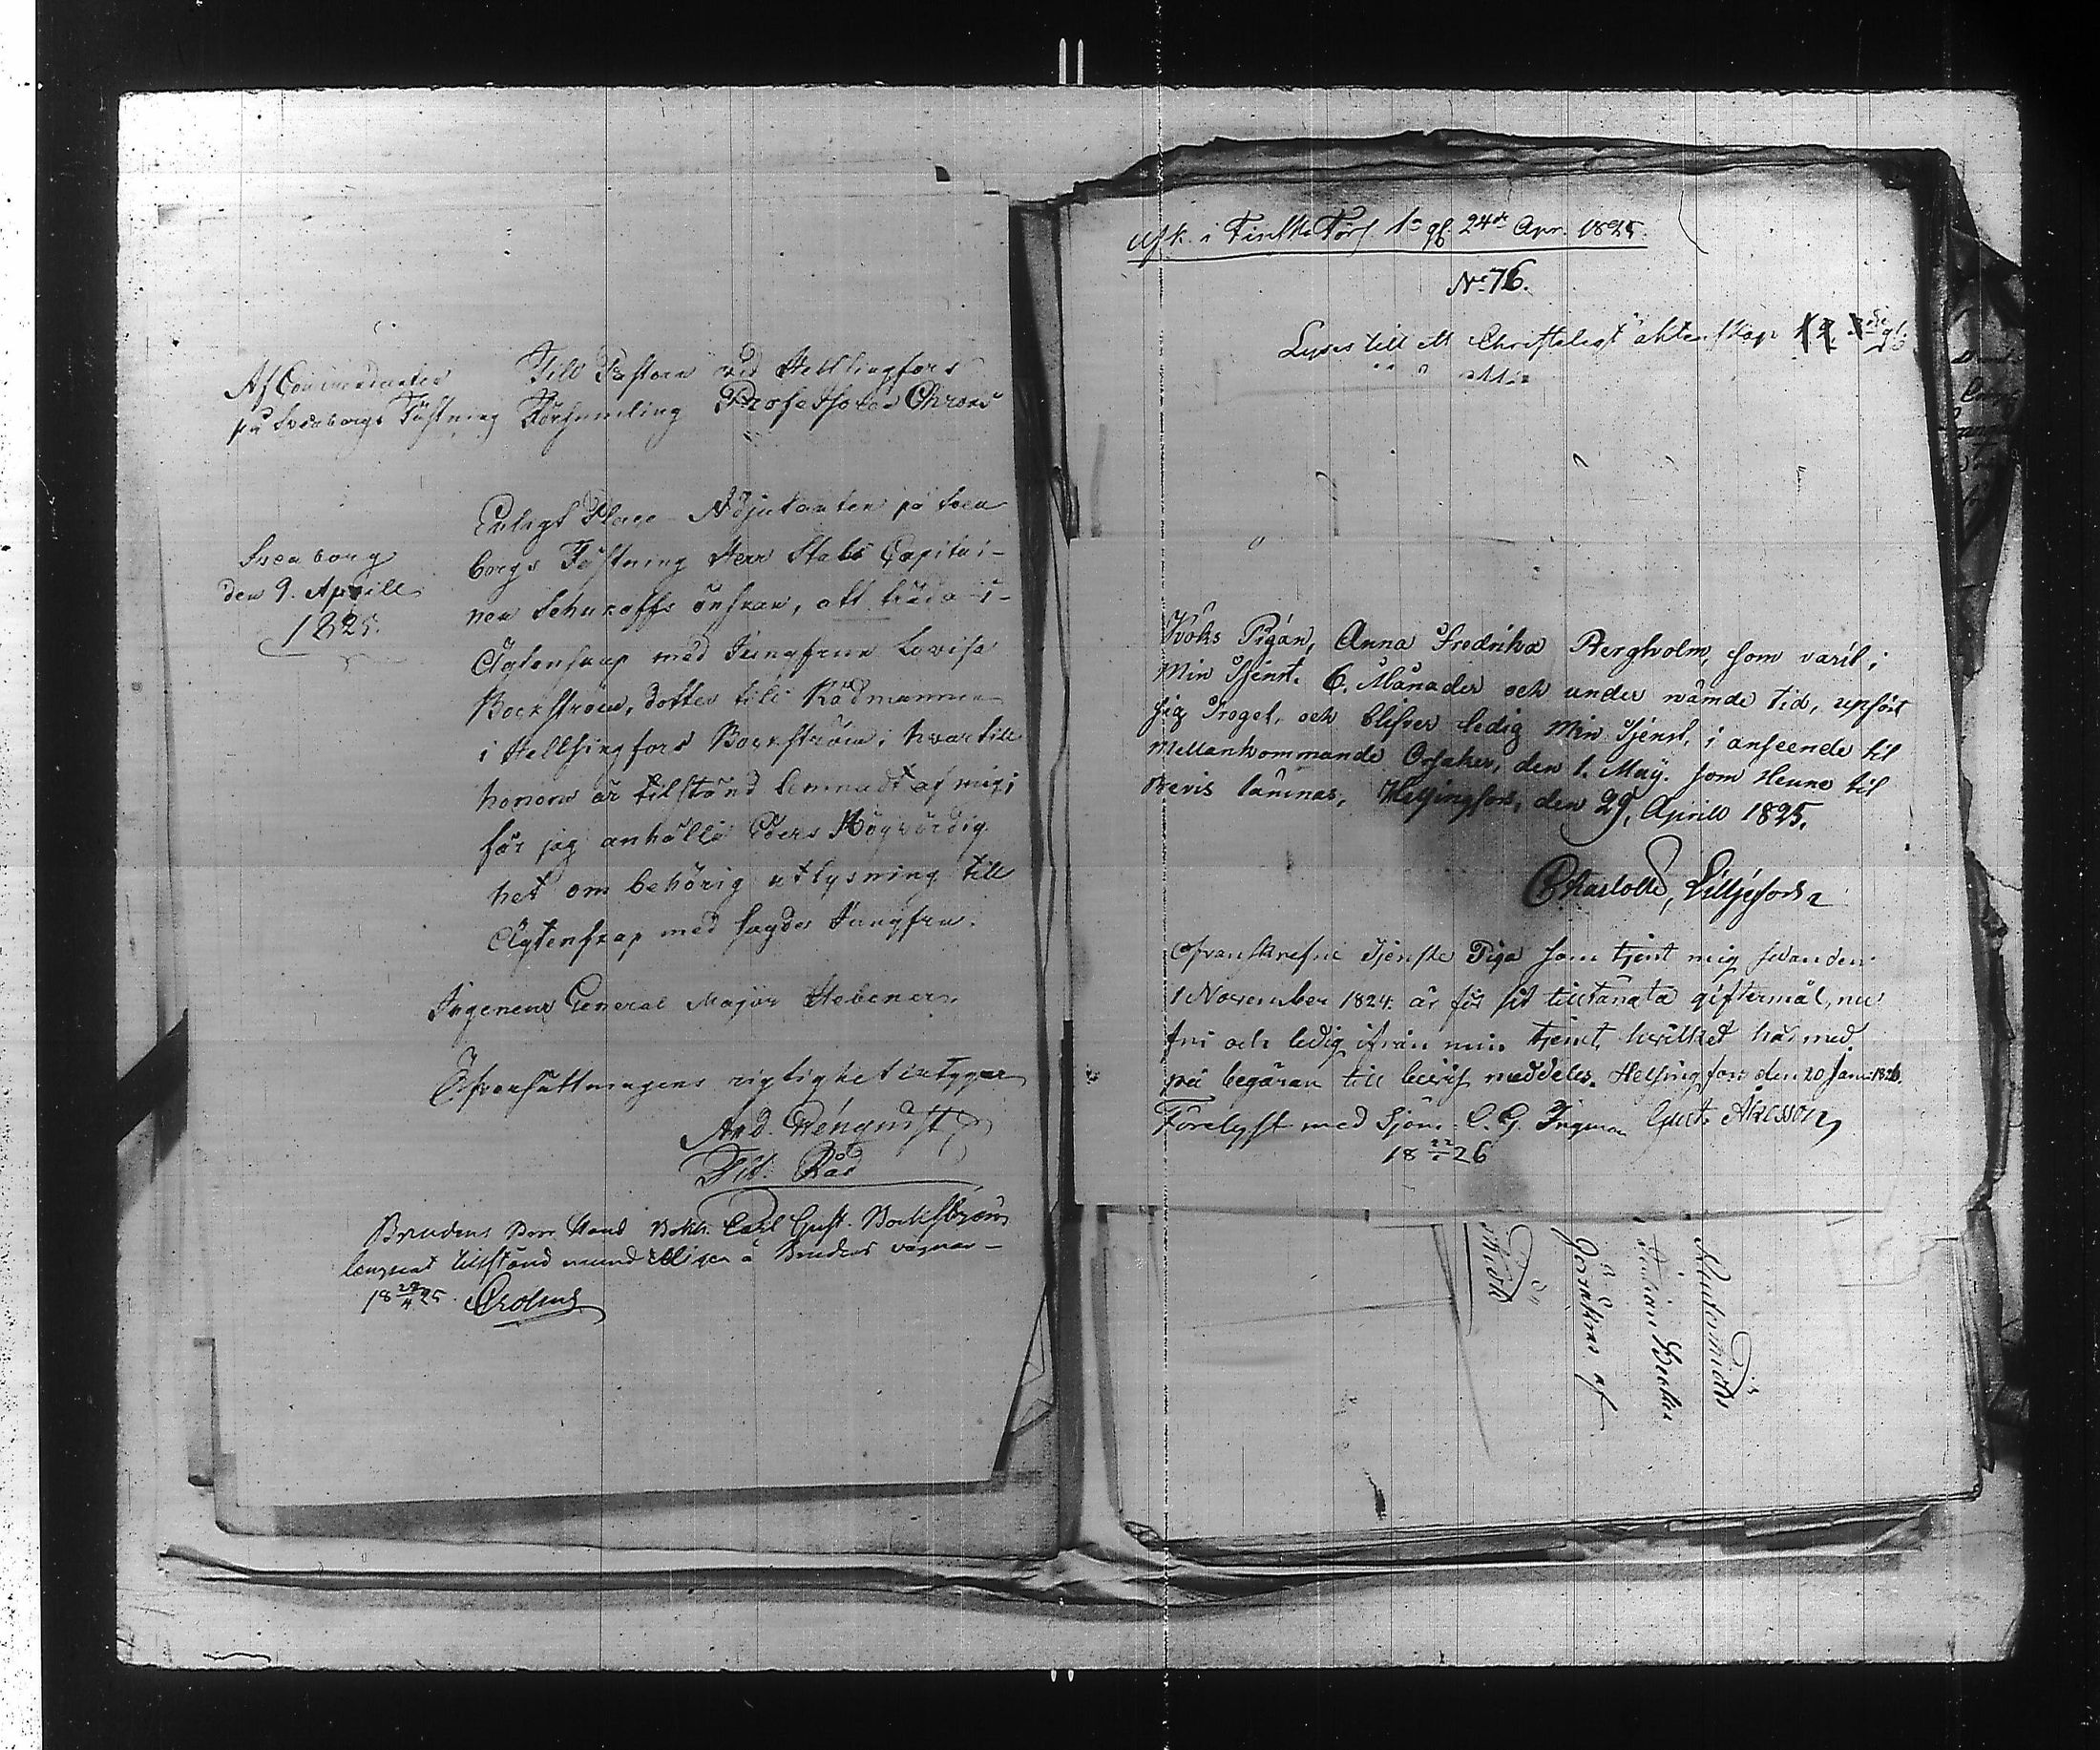 Af Commendanten
på Sveaborgs Fästning
Sveaborg
den 9. Aprill
1825.
Till Pastorn vid Hellsingfors
Församling Professoren Ohrons
Enligt Place-Adjutanten på Svea
borgs Fästning Herr Stabs Capitai-
nen Schukoffs önskan, att träda i
Ägtenskap med Jungfrun Lovisa
Bockström, dotter till Rådmannen
i Hellsingfors Bockström, hvartill
honom är tilstånd lemnadt af mig;
får jag anhålla Eders Högvördig
het om behörig utlysning till
Ägtenskap med sagde Jungfru.
Ingeneur General Major Hebener.
Öfversättningens rigtighet intygar
And. Wenqvist
Tit. Råd
Brudens Bror Hand. Bokh. Carl Gust. Bockström
lemnat tillstånd mundtligen å Brudens vägnar
18 24/4 25.
Afk. i Finska Förs. 1a gf. 24de Apr. 1825.
No 76.
Lyses till ett Christeligt äktenskap
Koks Pigan, Anna Fredrika Bergholm, som varit i
Min Tjenst. 6. Månader och under nämde tid, upfört
sig Troget, och blifver ledig Min Tjenst, i anseende til
Mellankommande Orsaker, den 1. May. som Henne til
Bevis lämnas, Helsingfors, den 29, Aprill 1825.
Charlotte, Lilljefors
Ofvanskrefne Tjenste Piga som tjent mig sedan den
1 November 1824. är för sit tilltänckta giftermål, nu
fri och ledig ifrån min tjenst, hvilket härmed
på begäran till bevis meddeles. Helsingfors den 20 Jan: 1826.
Förelyst med Sjöm. C. G. Ingman Gust. Åkesson
18 22/1 26